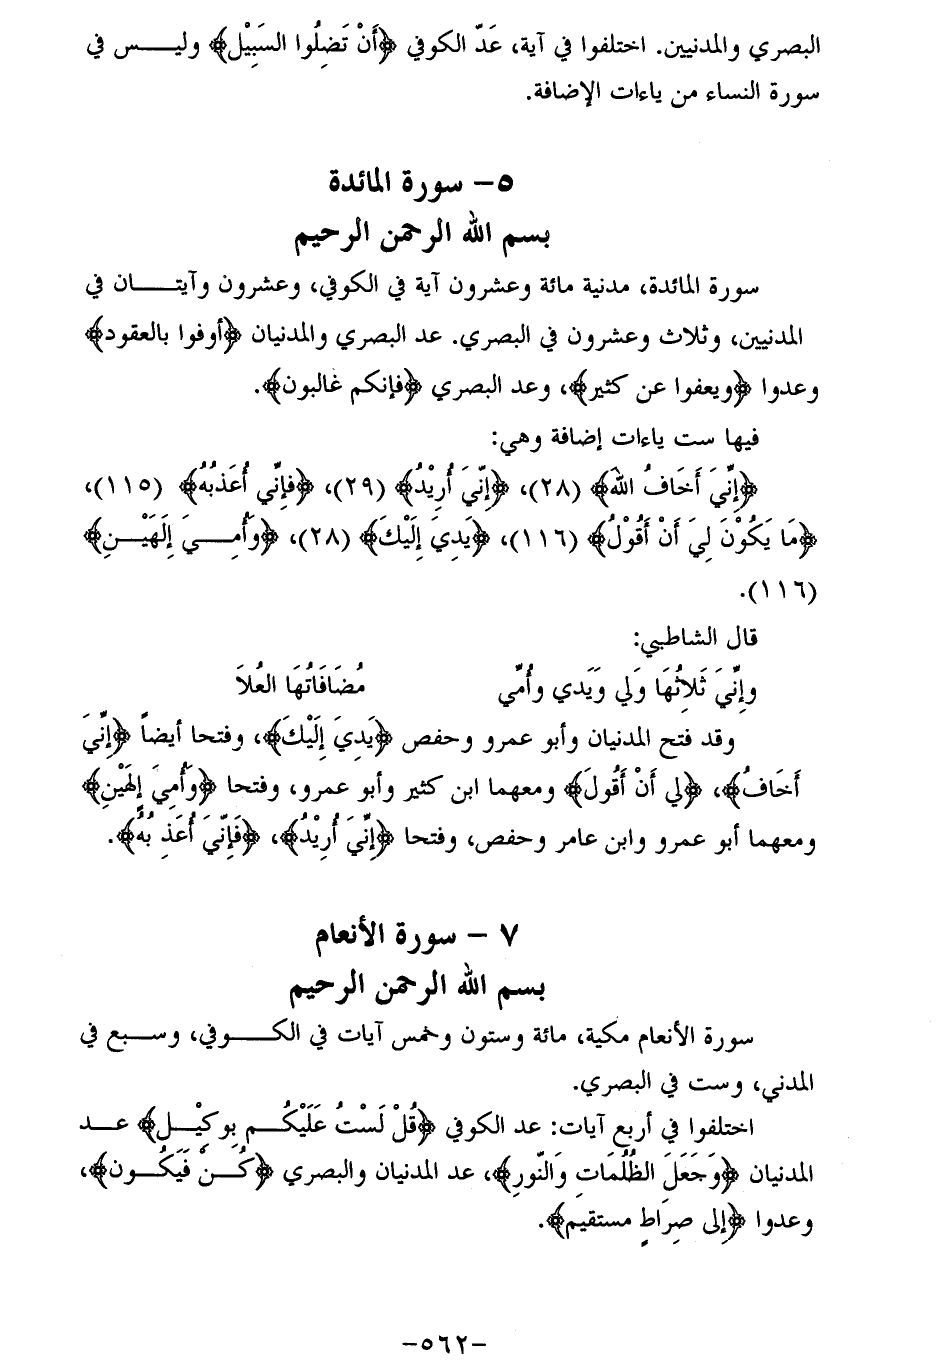 البصري والمدنيين. اختلفوا في آية، عَدّ الكوفي ﴿أَنْ تَضِلُوا السَبِيْل﴾ وليـس في
سورة النساء من ياءات الإضافة.
٥- سورة المائدة
بسم الله الرحمن الرحيم
سورة المائدة، مدنية مائة وعشرون آية في الكوفي، وعشرون وآيتـان في
المدنيين، وثلاث وعشرون في البصري. عد البصري والمدنيان ﴿أوفوا بالعقود﴾
وعدوا ﴿ويعفوا عن كثير﴾، وعد البصري ﴿فإنكم غالبون﴾.
فيها ست ياءات إضافة وهي:
﴿إِنِّيَ أَخَافُ اللهَ﴾ (٢٨)، ﴿إِنِّيَ أُرِيْدُ﴾ (٢٩)، ﴿فإنِّي أُعَذبُهُ﴾ (١١٥)،
﴿مَا يَكُوْنَ لِيَ أَنْ أَقُوْلُ﴾ (١١٦)، ﴿يَدِيَ إِلَيْكَ﴾ (٢٨)، ﴿وأُمِـيَ إِلَهَيْـنِ﴾
(١١٦).
قال الشاطبي:
وإِنِّيَ ثَلاثُهَا وَلي وَيَدي وأُمِّي مُضَافَاتُها العُلاَ
وقد فتح المدنيان وأبو عمرو وحفص ﴿يَدِيَ إِلَيْكَ﴾، وفتحا أيضاً ﴿إِنِّيَ
أَخَافُ﴾، ﴿لِي أَنْ أَقُولَ﴾ ومعهما ابن كثير وأبو عمرو، وفتحا ﴿وَأُمِيَ إِلَهْيْنِ﴾
ومعهما أبو عمرو وابن عامر وحفص، وفتحا ﴿إِنِّيَ أُرِيْدُ﴾، ﴿فَإِنِّيَ أُعَذِبُهُ﴾.
٧ - سورة الأنعام
بسم الله الرحمن الرحيم
سورة الأنعام مكية، مائة وستون وخمس آيات في الكـوفي، وسـبع في
المدني، وست في البصري.
اختلفوا في أربع آيات: عد الكوفي ﴿قُلْ لَسْتُ عَلَيْكُـم بِوكِيْـل﴾ عـد
المدنيان ﴿وَجَعَلَ الظُلُمَاتِ وَالنّورِ﴾، عد المدنيان والبصري ﴿كُـنْ فَيَكُـون﴾،
وعدوا ﴿إلى صِرَاطٍ مستقيم﴾.
-٥٦٢-